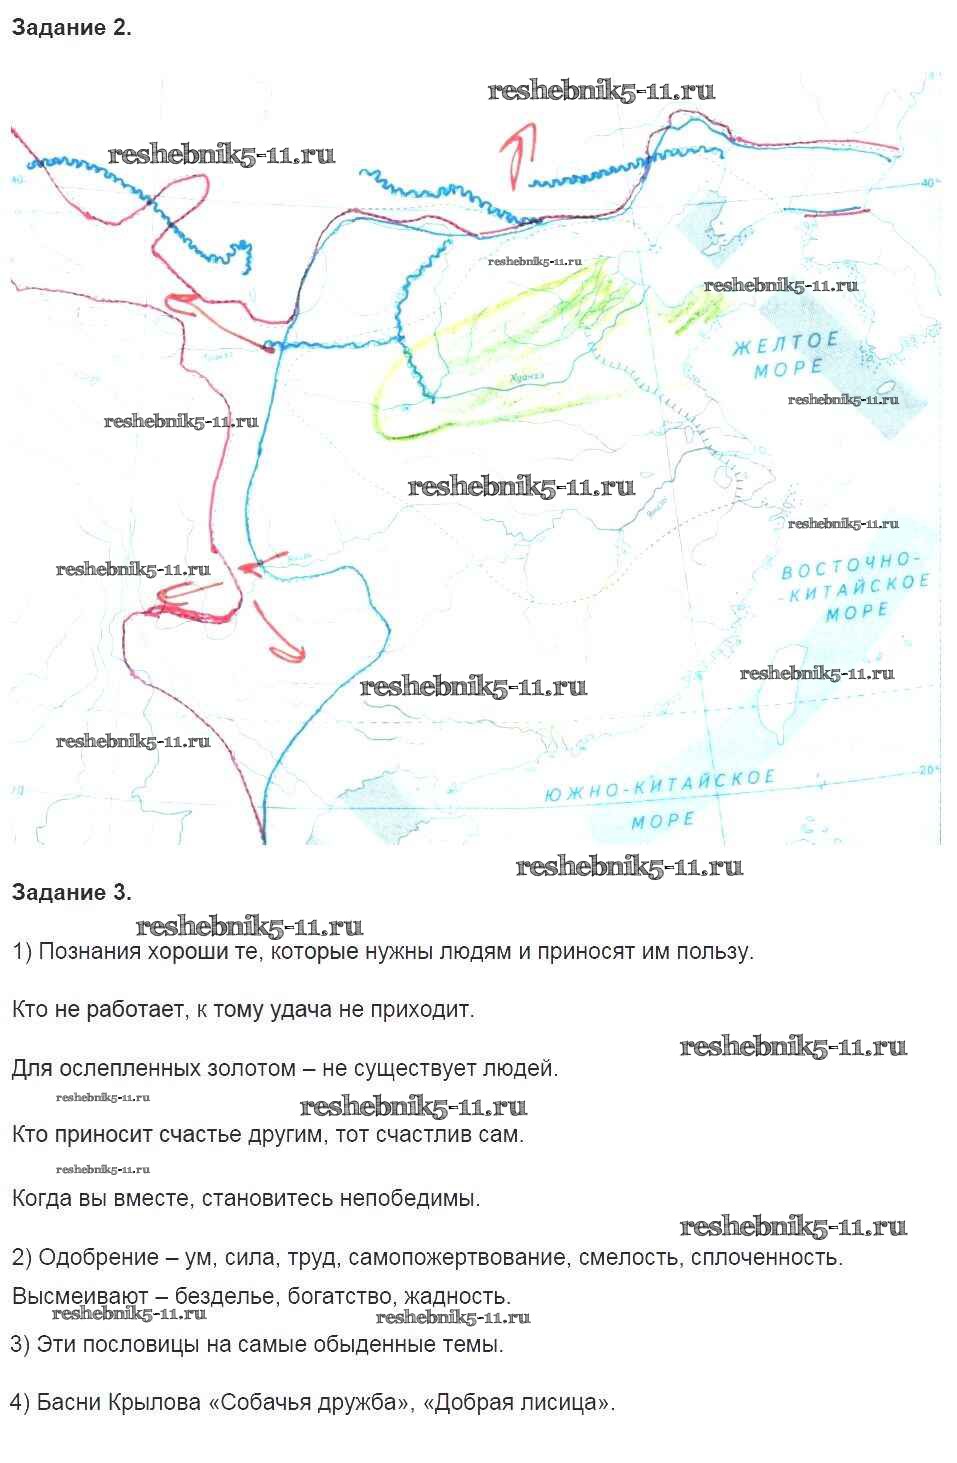 Задание 2.
reshebnik5-11.ru
reshebnik5-11.ru
40°
reshebnik5-11.ru
reshebnik5-11.ru
ЖЕЛТОЕ
МОРЕ
Хуанхэ
reshebnik5-11.ru
reshebnik5-11.ru
reshebnik5-11.ru
reshebnik5-11.ru
reshebnik5-11.ru
ВОСТОЧНО-
-КИТАЙСКОЕ
МОРЕ
reshebnik5-11.ru
reshebnik5-11.ru
reshebnik5-11.ru
20°
ЮЖНО-КИТАЙСКОЕ
МОРЕ
reshebnik5-11.ru
Задание 3.
reshebnik5-11.ru
1) Познания хороши те, которые нужны людям и приносят им пользу.
Кто не работает, к тому удача не приходит.
reshebnik5-11.ru
Для ослепленных золотом – не существует людей.
reshebnik5-11.ru
reshebnik5-11.ru
Кто приносит счастье другим, тот счастлив сам.
reshebnik5-11.ru
Когда вы вместе, становитесь непобедимы.
reshebnik5-11.ru
2) Одобрение – ум, сила, труд, самопожертвование, смелость, сплоченность.
Высмеивают – безделье, богатство, жадность.
reshebnik5-11.ru
reshebnik5-11.ru
3) Эти пословицы на самые обыденные темы.
4) Басни Крылова «Собачья дружба», «Добрая лисица».